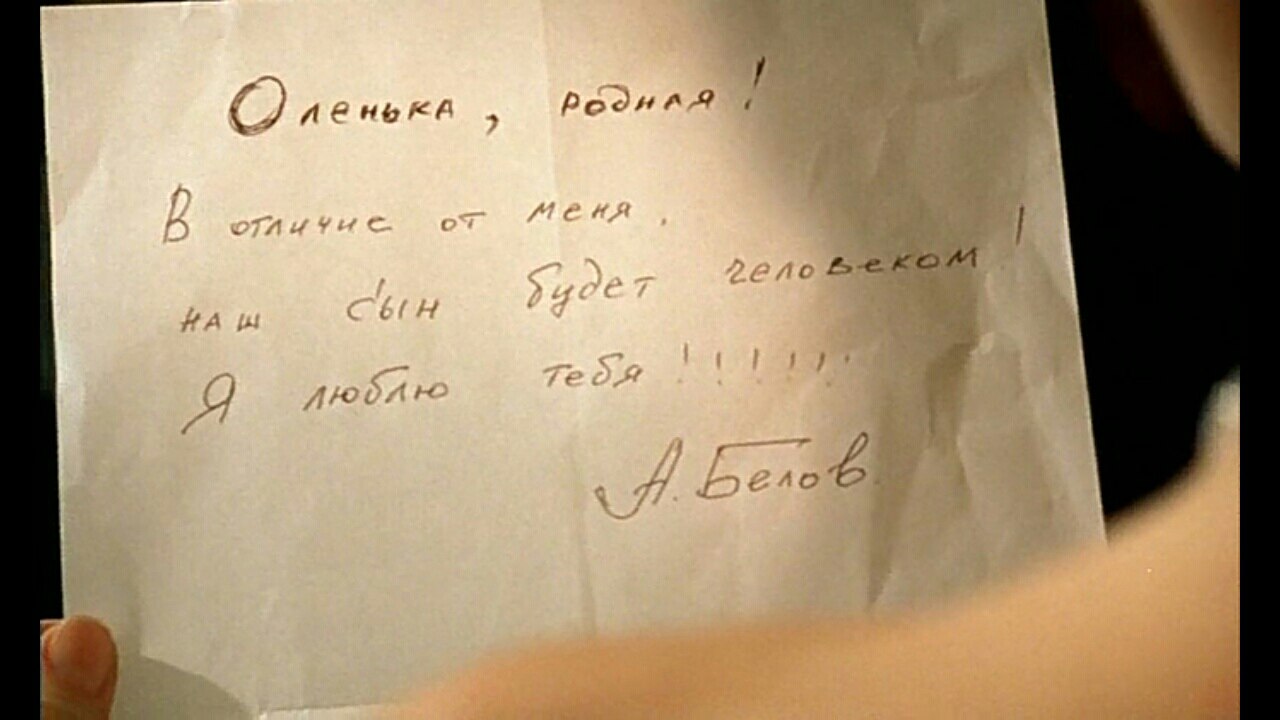 Оленька, родная!
В отличие от меня.
наш сын будет человеком!
Я люблю тебя!!!!!!
А. Белов